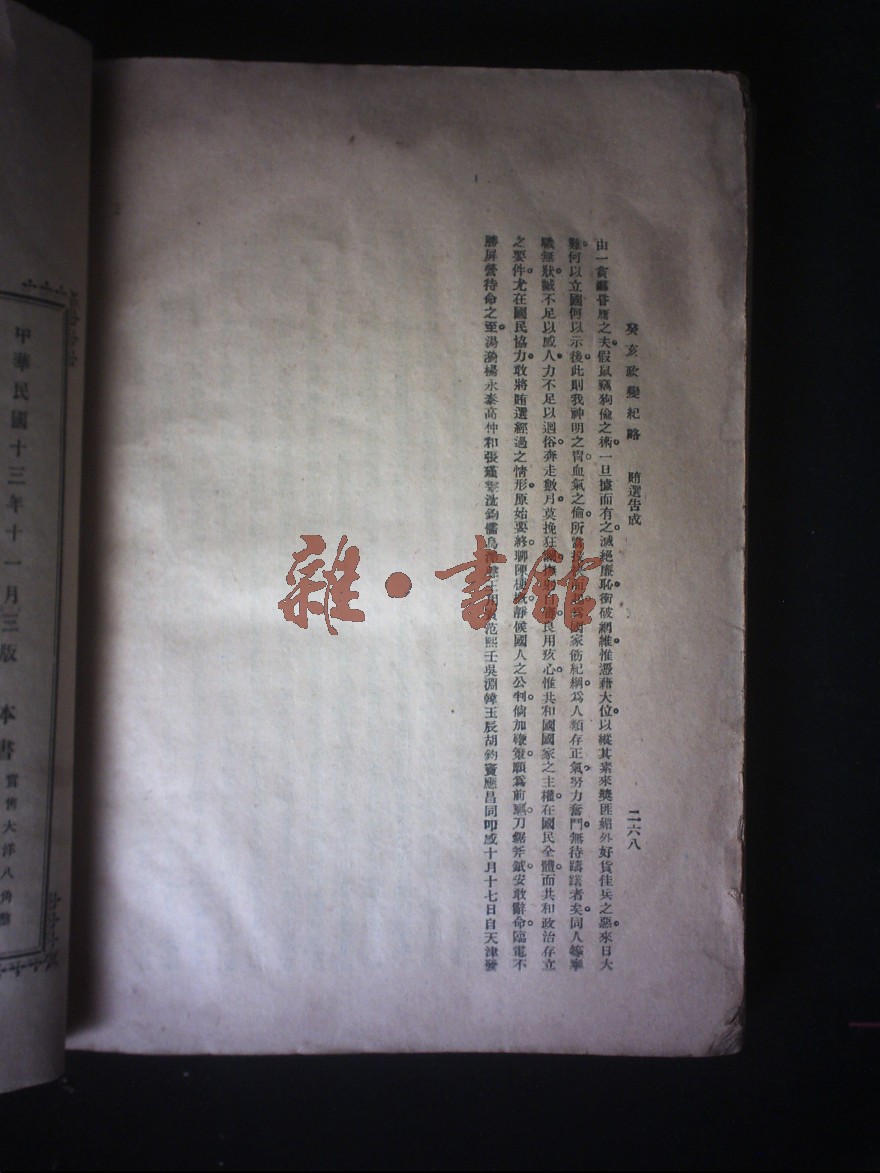 癸亥政變紀略　賄選告成　二六八
由一貪鄙昏庸之夫。假鼠竊狗偷之術。一旦據而有之。滅絕廉恥。衝破網維。惟憑藉大位。以縱其素來獎匪媚外好貨佳兵之惡。來日大
難。何以立國。何以示後。此則我神明之胄。血氣之倫。所當 國家飭紀綱。爲人類存正氣。努力奮鬥。無待躊躇者矣。同人等奉
職無狀。誠不足以感人。力不足以迴俗。奔走數月。莫挽狂 民。用疚心。惟共和國國家之主權。在國民全體。而共和政治存立
之要件。尤在國民協力。敢將賄選經過之情形。原始要終。聊陳 靜候國人之公判。倘加鞭策。願爲前驅。刀鋸斧鉞。安敢辭命。臨電不
勝屏營待命之至。湯漪楊永泰高仲和張瑾雯沈鈞儒烏 范熙壬吳淵韓玉辰胡鈞竇應昌同叩感十月十七日自天津發
雜·書館
中華民國十三年十一月三版
本書實售大洋八角整